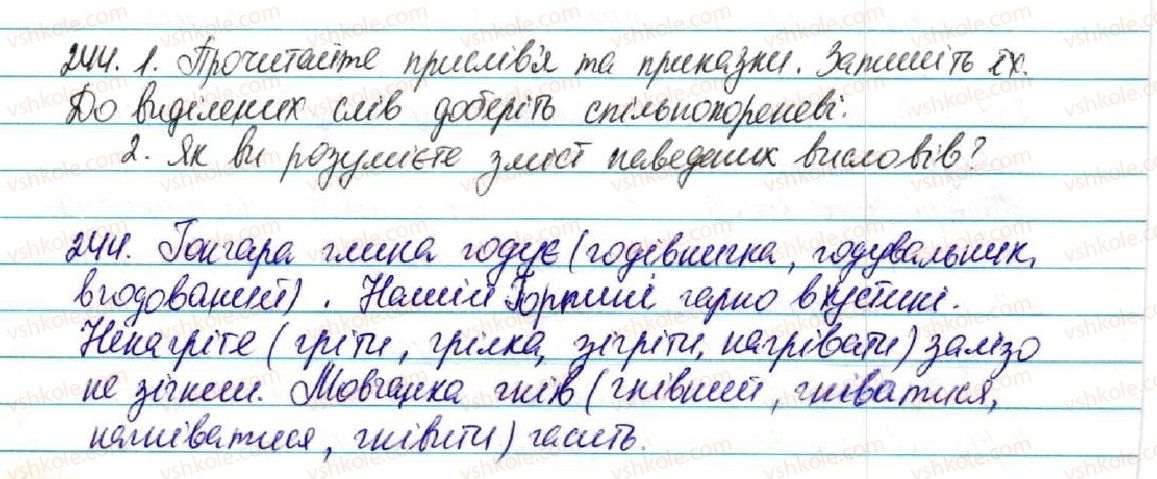 244. 1. Прочитайте прислів'я та приказки. Запишіть їх.
До виділених слів доберіть спільнокореневі.
2. Як ви розумієте зміст наведених висловів?
244. Гончара глина годує (годівничка, годувальник,
вгодований). Нашій Горпині гарно в хустині.
Ненагріте (гріти, грілка, зігріти, нагрівати) залізо
не зігнеш. Мовчанка гнів (гнівний, гніватися,
нагніватися, гнівити) гасить.